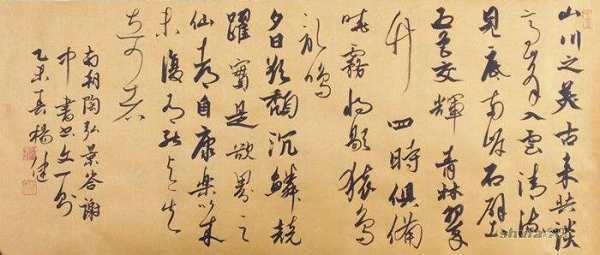 山川之美古来共談
高峰入雲清流
見底兩岸石壁
五色交輝青林翠
竹四時俱備
曉霧將歇猿鳥
亂鳴
夕日欲頹沉鱗競
躍實是欲界之
仙都自康樂以来
未復有能與其
奇者
南朝陶弘景答謝
中書書文一則
乙未春楊健